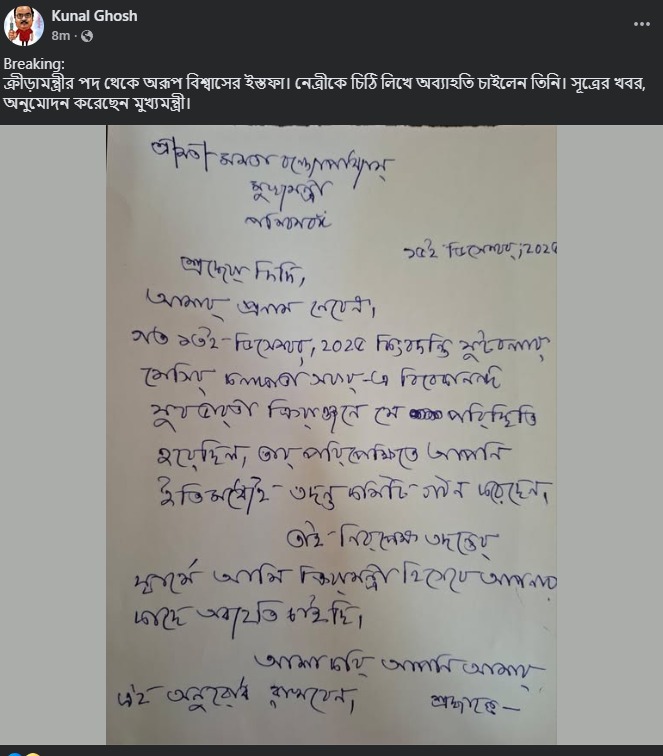 Kunal Ghosh
8m
Breaking:
ক্রীড়ামন্ত্রীর পদ থেকে অরূপ বিশ্বাসের ইস্তফা। নেত্রীকে চিঠি লিখে অব্যাহতি চাইলেন তিনি। সূত্রের খবর,
অনুমোদন করেছেন মুখ্যমন্ত্রী।
শ্রীমতী মমতা বন্দ্যোপাধ্যায়
মুখ্যমন্ত্রী
পশ্চিমবঙ্গ
১৫ই ডিসেম্বর, 2025
শ্রদ্ধেয় দিদি,
আমার প্রনাম নেবেন,
গত ১৩ই ডিসেম্বর, 2025 কিংবদন্তি ফুটবলার
মেসির কলকাতা সফর-এ বিবেকানন্দ
যুবভারতী ক্রীড়াঙ্গনে যে পরিস্থিতি
হয়েছিল, তার পরিপ্রেক্ষিতে আপনি
ইতিমধ্যেই তদন্ত কমিটি গঠন করেছেন,
তাই নিরপেক্ষ তদন্তের
স্বার্থে আমি ক্রীড়ামন্ত্রী হিসেবে আপনার
কাছে অব্যহতি চাইছি,
আশা করি আপনি আমার
এই অনুরোধ রাখবেন, শ্রদ্ধান্তে —